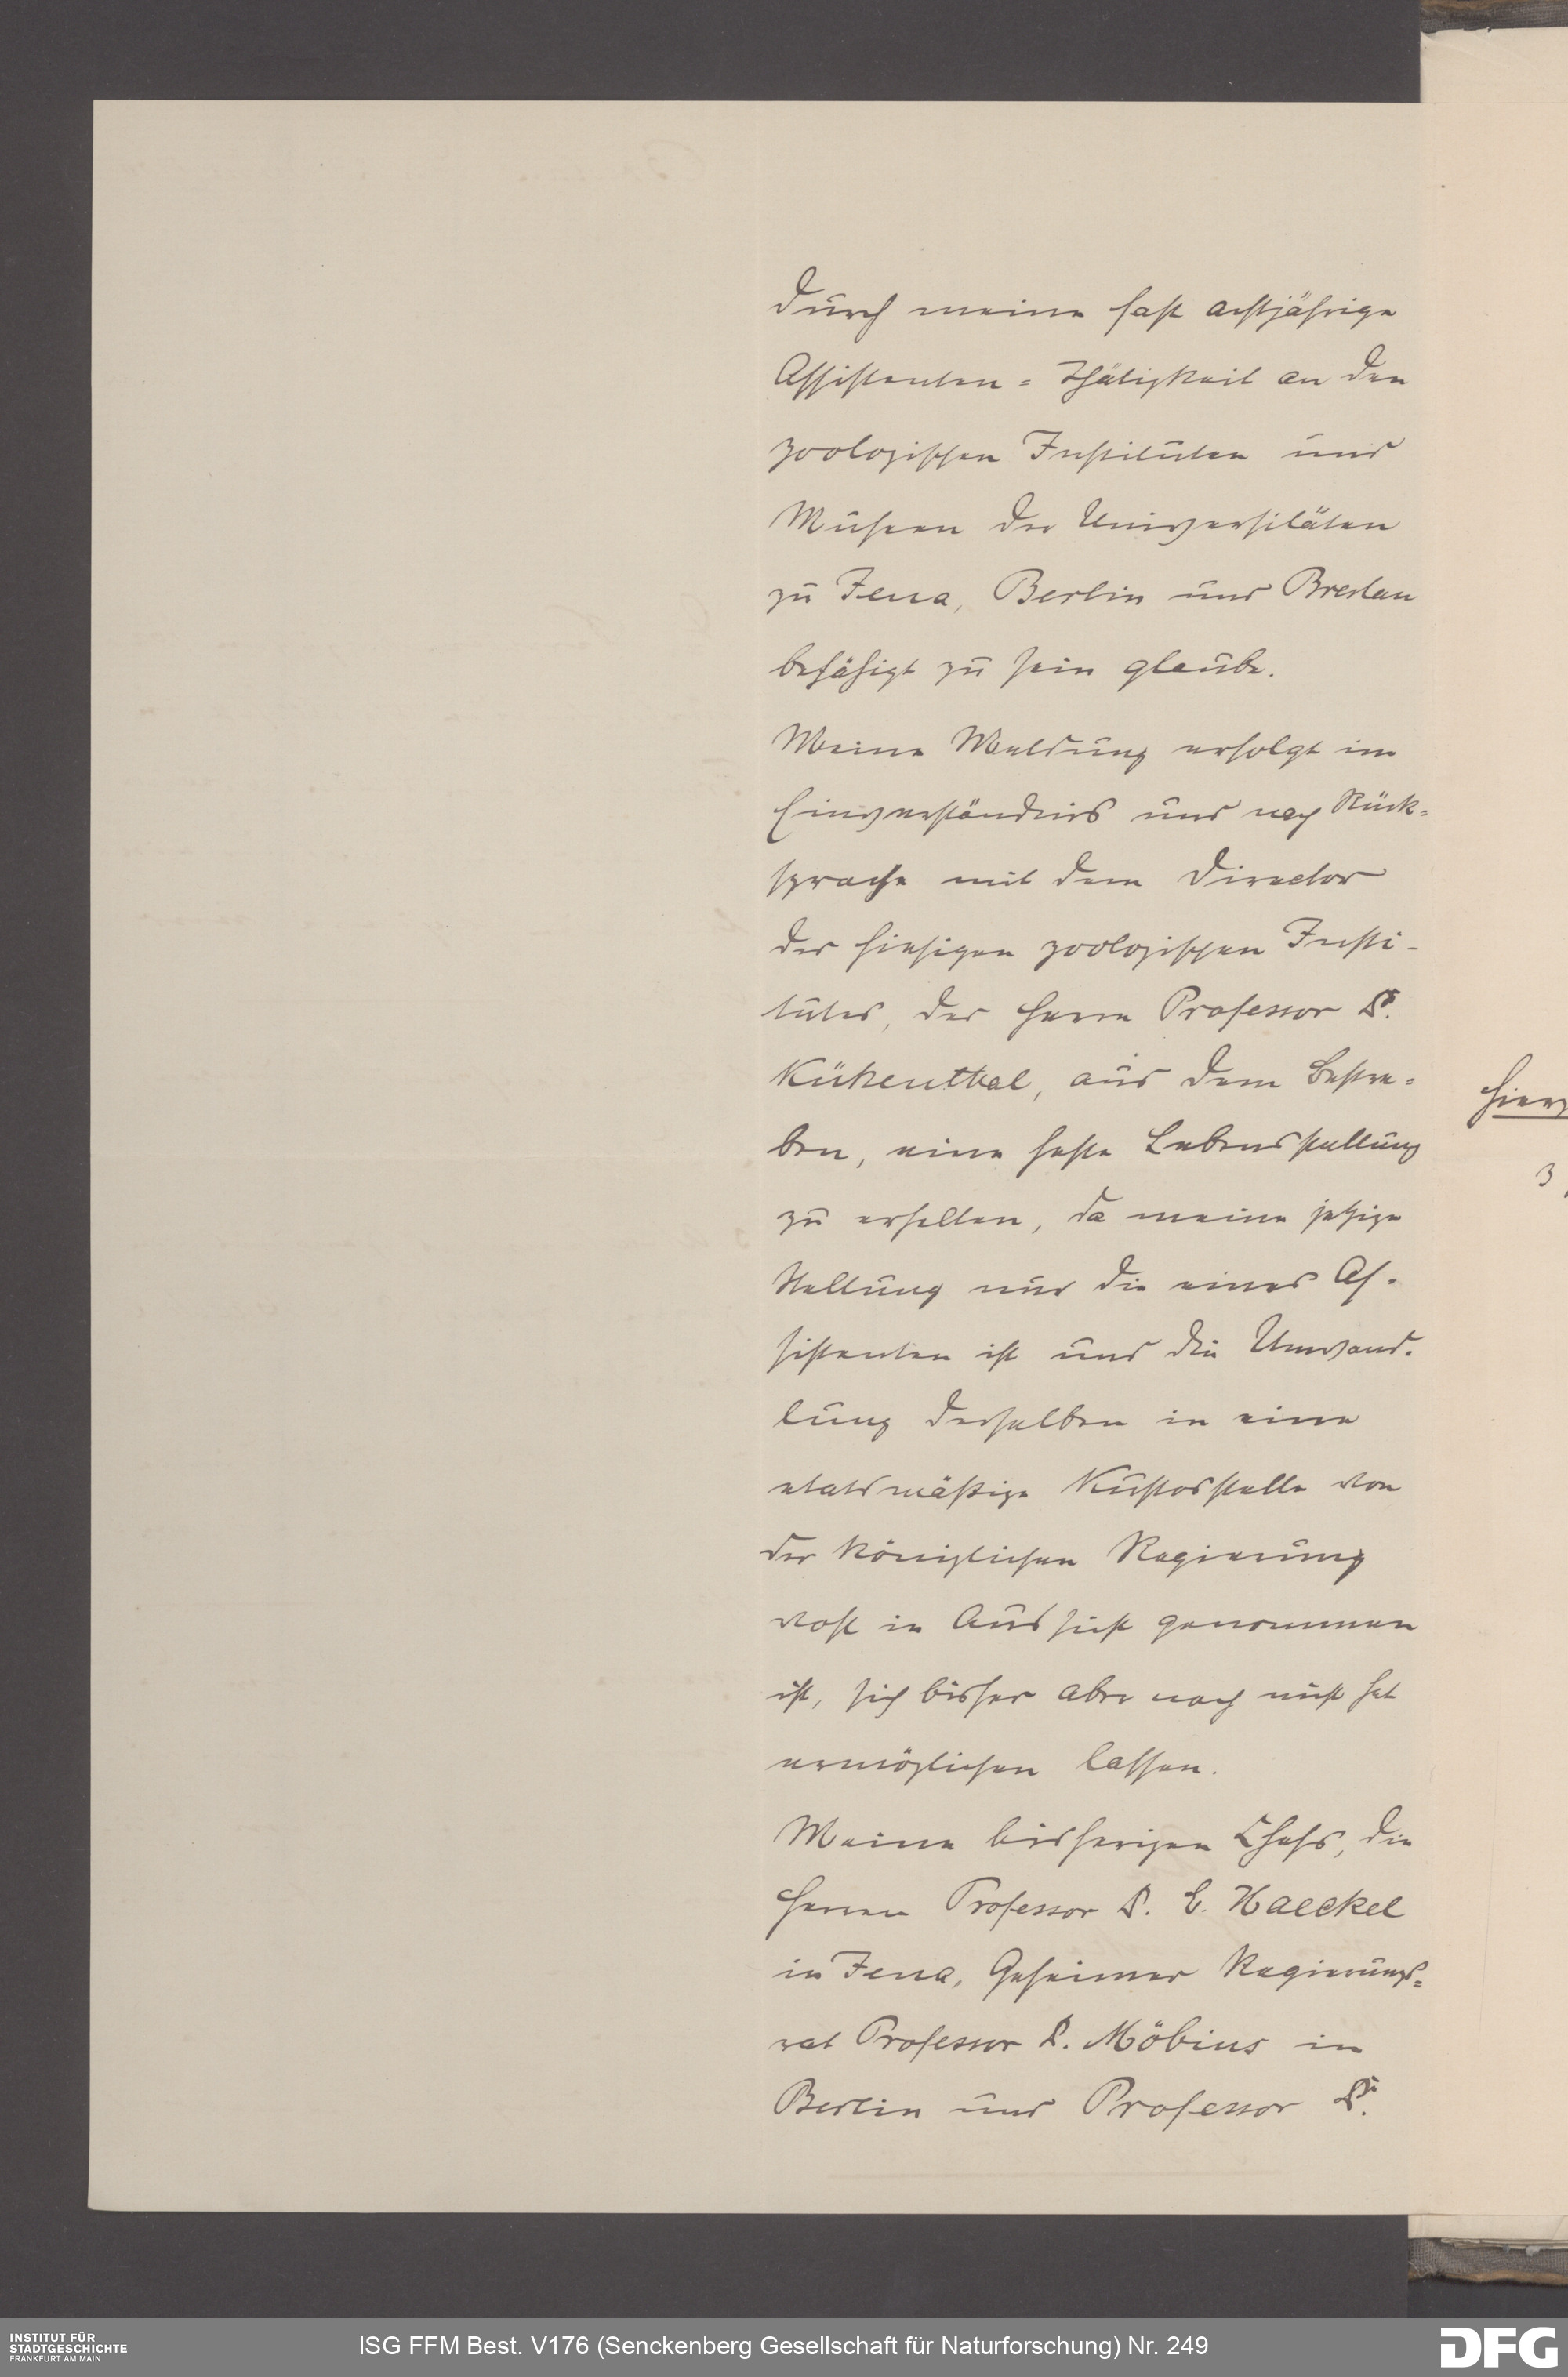 durch meine fast achtjährige
Assistenten = Thätigkeit an den
zoologischen Instituten und
Museen der Universitäten
zu Jena, Berlin und Breslau
befähigt zu sein glaube.
Meine Meldung erfolgt im
Einverständnis und nach Rück=
sprache mit dem Director
des hiesigen zoologischen Insti-
tutes, des Herrn Professor Dr.
Kükenthal, aus dem Bestre=
ben, eine feste Lebensstellung
zu erhalten, da meine jetzige
Stellung nur die eines As-
sistenten ist und die Umwand-
lung derselben in eine
etatsmäßige Kustosstelle von
der Königlichen Regierung
wohl in Aussicht genommen
ist, sich bisher aber noch nicht hat
ermöglichen lassen.
Meine bisherigen Chefs, die
Herren Professor Dr. E. Haeckel
in Jena, Geheimer Regierungs=
rat Professor Dr. Möbius in
Berlin und Professor Dr.
3
INSTITUT FÜR
STADTGESCHICHTE
FRANKFURT AM MAIN
ISG FFM Best. V176 (Senckenberg Gesellschaft für Naturforschung) Nr. 249
DFG